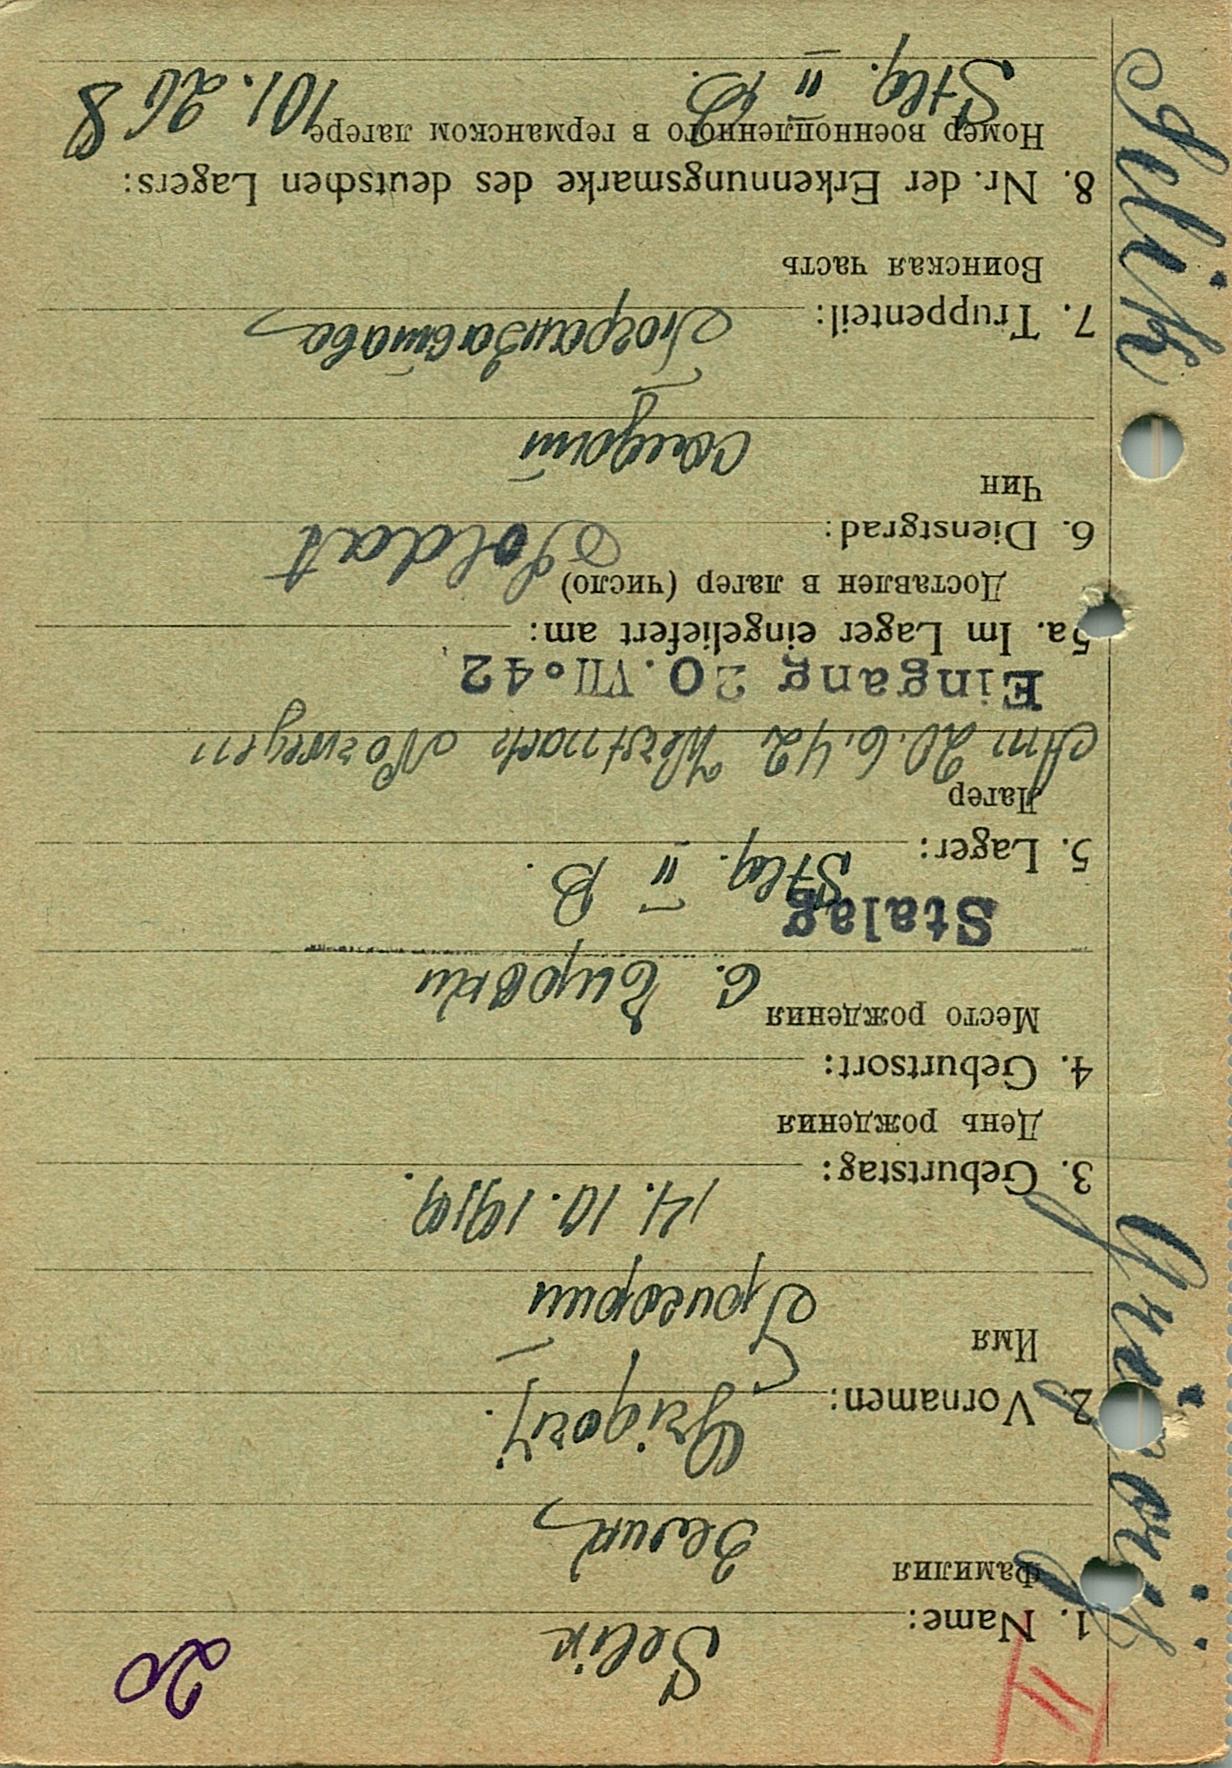 II
20
Selik Grigorij
1. Name: Selik
Фамилия Зелик
2. Vornamen: Grigorij.
Имя Григорий
3. Geburtstag: 14.10.1919.
День рождения
4. Geburtsort:
Место рождения с.
Stalag
5. Lager: Stlg. II B.
Лагер
Am 20.6.42 Westmark Norwegen
Eingang 20.VII.42
5a. Im Lager eingeliefert am:
Доставлен в лагер (число)
6. Dienstgrad: Soldat
Чин
солдат
7. Truppenteil: Погранзастава
Воинская часть
8. Nr. der Erkennungsmarke des deutschen Lagers:
Номер военнопленного в германском лагере 101.268
Stlg. II B.